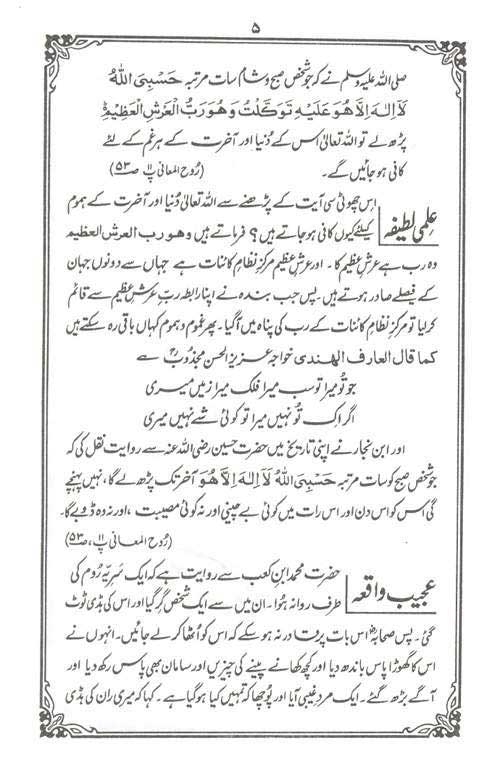 ۵
صلی اللہ علیہ وسلم نے کہ جو شخص صبح و شام سات مرتبہ حَسْبِیَ اللّٰہُ
لَآ اِلٰہَ اِلَّا ھُوَ عَلَیْہِ تَوَکَّلْتُ وَھُوَ رَبُّ الْعَرْشِ الْعَظِیْمِ
پڑھ لے تو اللہ تعالیٰ اس کے دُنیا اور آخرت کے ہر غم کے لئے
کافی ہو جائیں گے۔ (رُوح المعانی پ۱۱ ص۵۳)
علمی لطیفہ
اِس چھوٹی سی آیت کے پڑھنے سے اللہ تعالیٰ دُنیا اور آخرت کے ہموم
کیلئے کیوں کافی ہو جاتے ہیں؟ فرماتے ہیں وھو رب العرش العظیم
وہ رب ہے عرشِ عظیم کا۔ اور عرشِ عظیم مرکزِ نظامِ کائنات ہے جہاں سے دونوں جہان
کے فیصلے صادر ہوتے ہیں۔ پس جب بندہ نے اپنا رابطہ ربِّ عرشِ عظیم سے قائم
کر لیا تو مرکزِ نظامِ کائنات کے رب کی پناہ میں آگیا۔ پھر غموم و ہموم کہاں باقی رہ سکتے ہیں
کما قال العارف الھندی خواجہ عزیز الحسن مجذوبؒ ؎
جو تُو میرا تو سب میرا فلک میرا زمیں میری
اگر اِک تُو نہیں میرا تو کوئی شے نہیں میری
اور ابن نجار نے اپنی تاریخ میں حضرت حسین رضی اللہ عنہ سے روایت نقل کی کہ
جو شخص صبح کو سات مرتبہ حَسْبِیَ اللّٰہُ لَآ اِلٰہَ اِلَّا ھُوَ آخر تک پڑھ لے گا، نہیں پہنچے
گی اس کو اس دن اور اس رات میں کوئی بے چینی اور نہ کوئی مصیبت، اور نہ وہ ڈوبے گا۔
(رُوح المعانی پ۱۱، ص۵۳)
عجیب واقعہ
حضرت محمد ابن کعب سے روایت ہے کہ ایک سَرِیّہ رُوم کی
طرف روانہ ہُوا۔ ان میں سے ایک شخص گر گیا اور اس کی ہڈی ٹوٹ
گئی۔ پس صحابہؓ اس بات پر قادر نہ ہو سکے کہ اس کو اُٹھا کر لے جائیں۔ انہوں نے
اس کا گھوڑا پاس باندھ دیا اور کچھ کھانے پینے کی چیزیں اور سامان بھی پاس رکھ دیا اور
آگے بڑھ گئے۔ ایک مردِ غیبی آیا اور پُوچھا کہ تمہیں کیا ہو گیا ہے۔ کہا کہ میری ران کی ہڈی